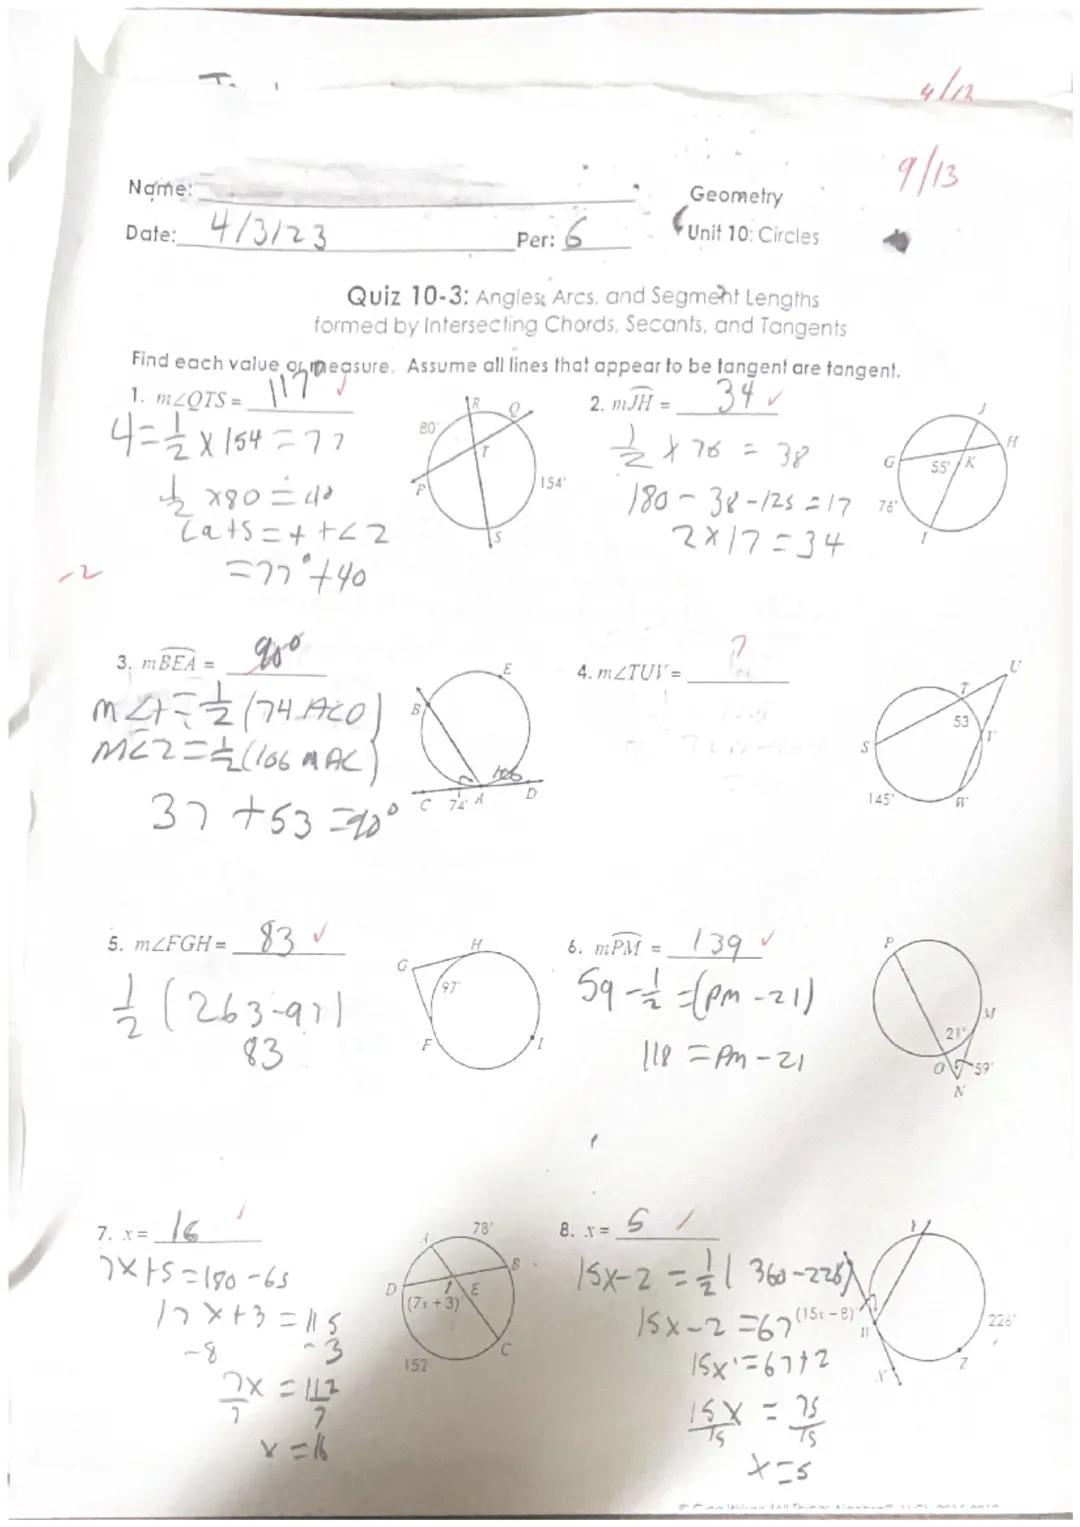 4/12
9/13
Name:
Geometry
Date: 4/3/23 Per: 6
Unit 10: Circles
Quiz 10-3: Angles, Arcs, and Segment Lengths
formed by Intersecting Chords, Secants, and Tangents
Find each value or measure. Assume all lines that appear to be tangent are tangent.
1. m∠QTS = 117° ✓
4 = 1/2 x 154 = 77
1/2 x 80 = 40
= 77° + 40
R
Q
80°
T
P
154°
S
2. mJH = 34 ✓
1/2 x 76 = 38
180 - 38 - 125 = 17
2 x 17 = 34
J
H
G
55°
K
76°
I
-2
3. mBEA = 90°
37 + 53 = 90°
E
B
106
C
74°
A
D
4. m∠TUV =
?
U
T
53
V
S
145°
W
5. m∠FGH = 83 ✓
1/2 (263-97)
83
H
G
97°
F
I
6. mPM = 139 ✓
59 - 1/2 = (PM - 21)
118 = PM - 21
P
M
21°
O
59°
N
7. x = 16 ✓
7x+5 = 180 - 65
17x+3 = 115
-8 -3
7x = 112
7 7
x = 16
A
78°
B
D
E
(7x + 3)°
C
152
8. x = 5 ✓
15x-2 = 1/2 ( 360-226)
15x-2 = 67
15x = 67+2
15x = 75
15 15
x = 5
Y
(15x - 8)°
226°
X
Z